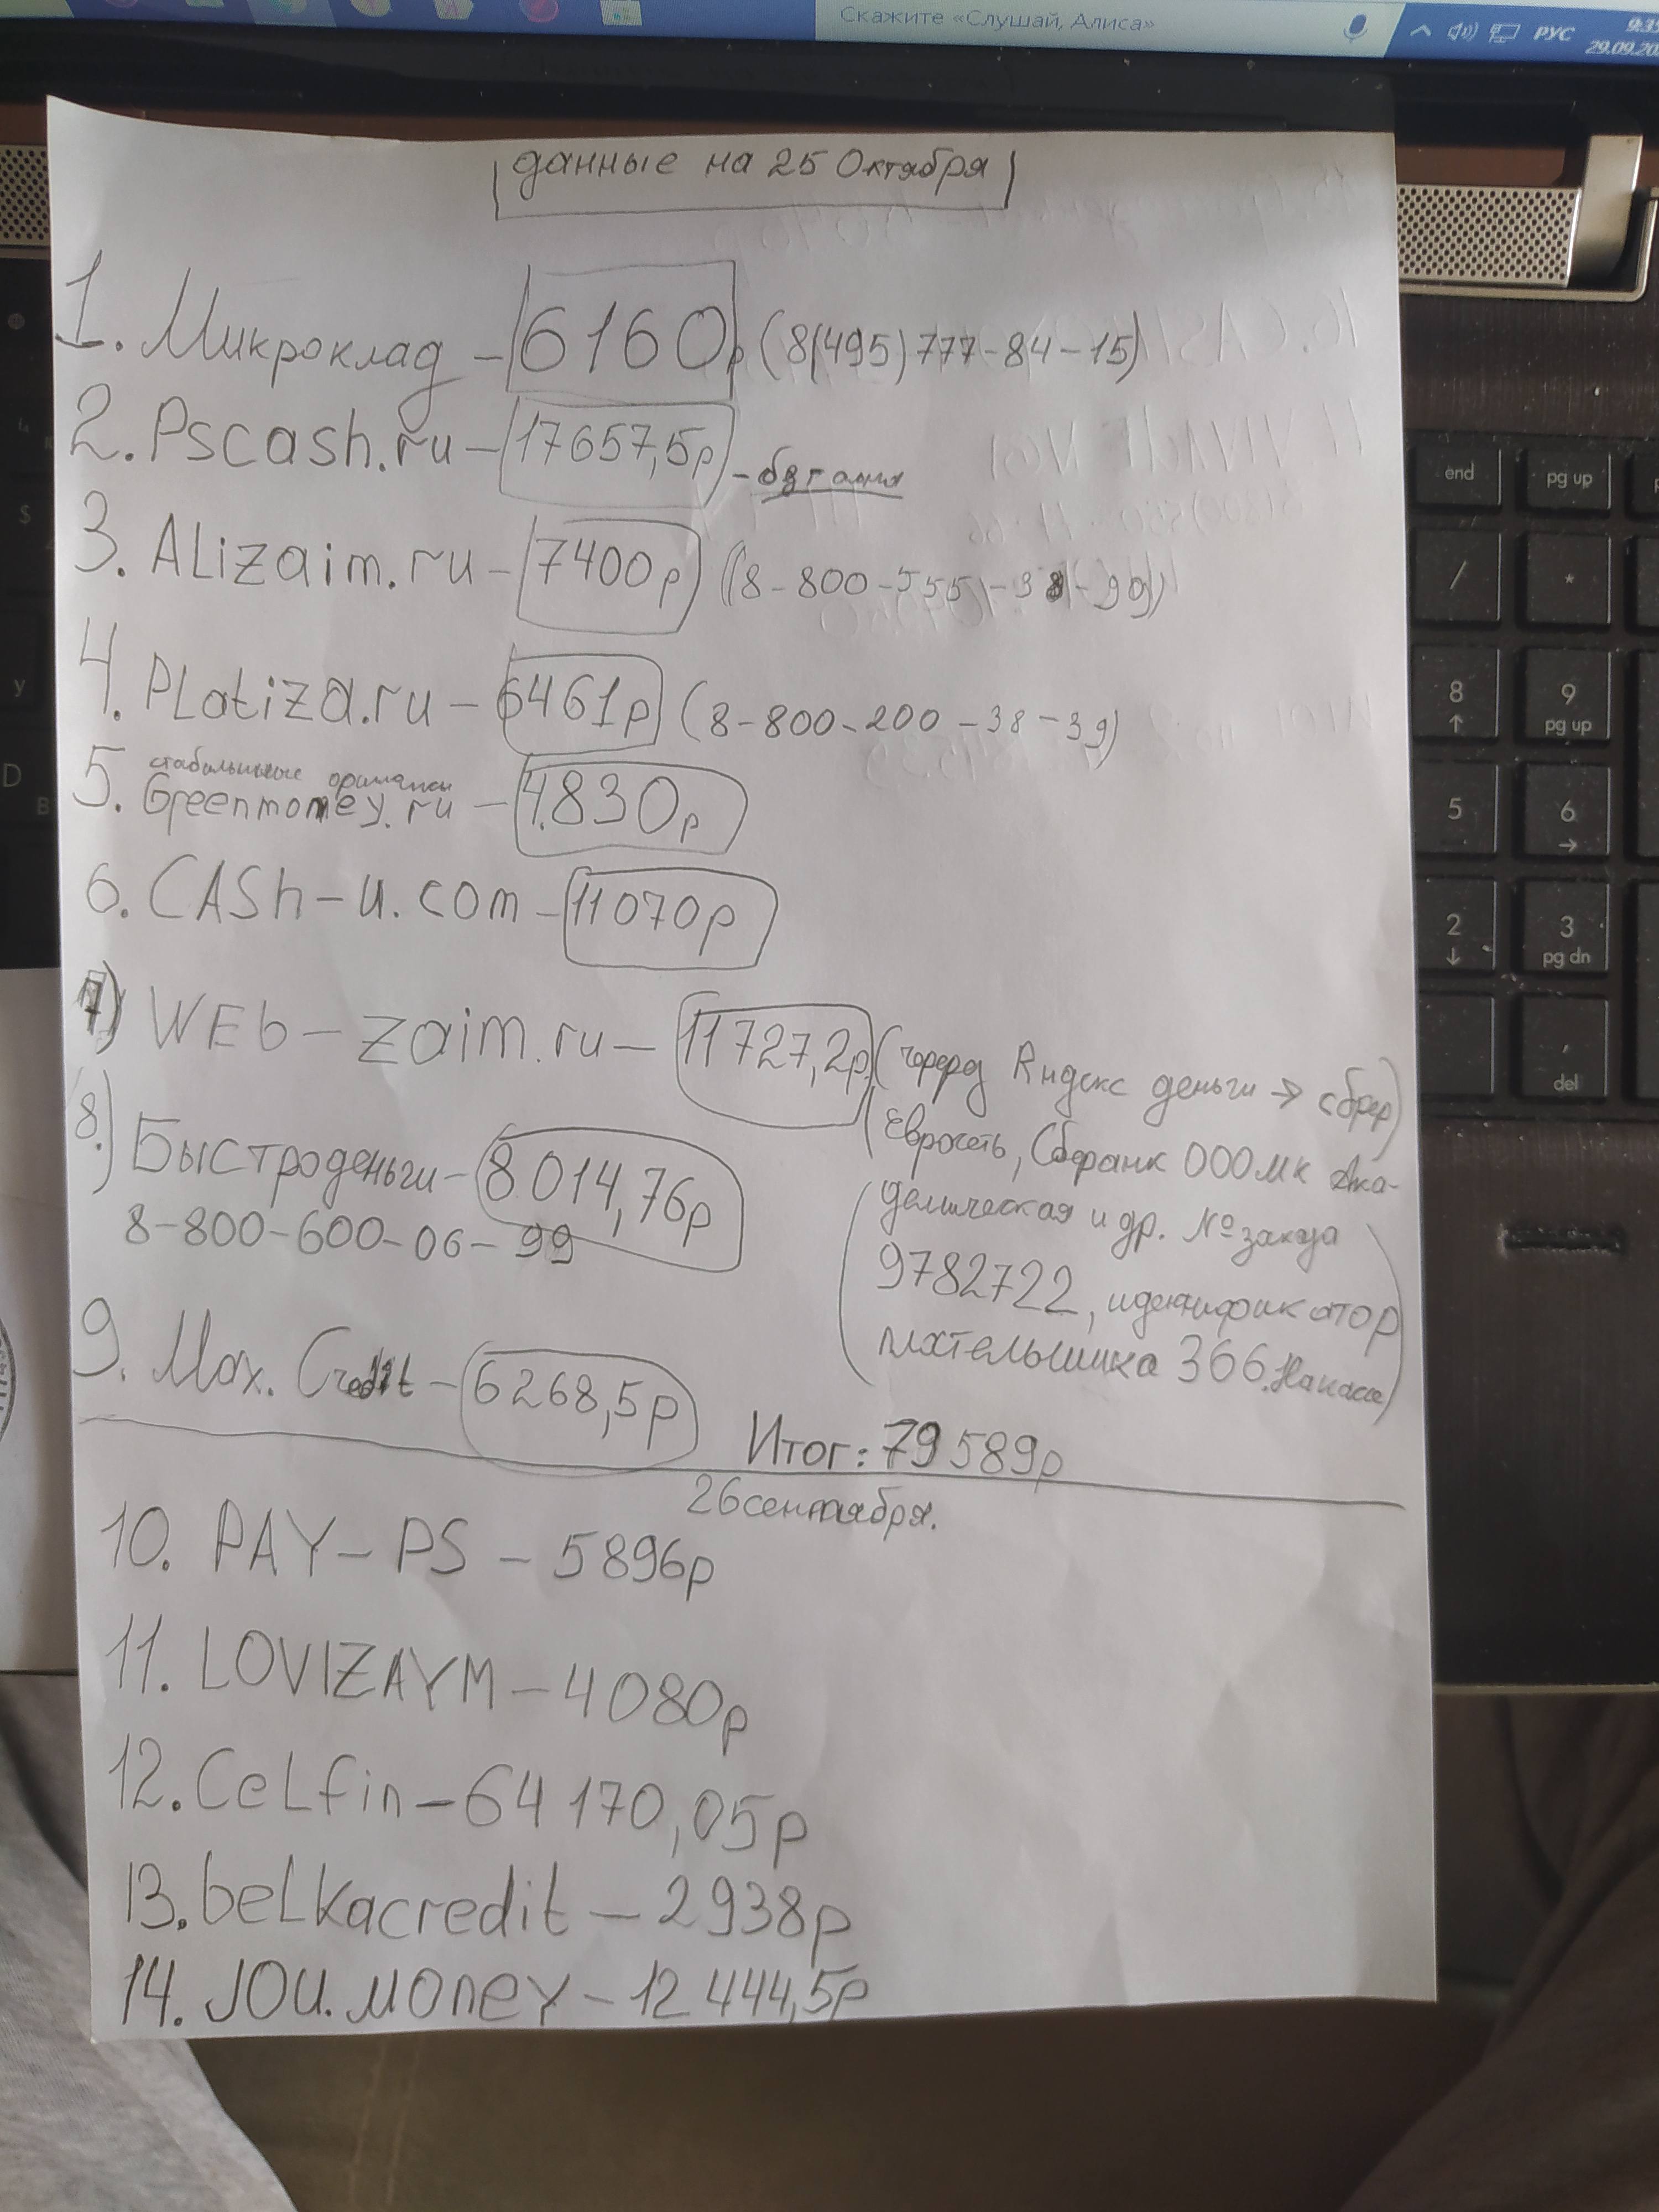 Скажите «Слушай, Алиса»
РУС
29.09.20
данные на 25 Октября
1. Микроклад - 6160р (8(495)777-84-15)
2. Pscash.ru - 17657,5р -
3. ALizaim.ru - 7400р ((8-800-555)-38-99)
4. PLatiza.ru - 6461р (8-800-200-38-39)
5. Greenmoney.ru - 4.830р
6. CASh-u.com - 11070р
7) WEb-zaim.ru - 11727,2р. ( Яндекс деньги → сбер)
8.) Быстроденьги - 8.014,76р
8-800-600-06-99
(Евросеть, Сберанк ООО МК Ака-
демическая и др. № заказа
9782722, идентификатор
плательшика 366.
9. Max. Credit - 6268,5р
Итог: 79589р
26 сентября.
10. PAY-PS - 5896р
11. LOVIZAYM - 4080р
12. CeLfin - 64170,05р
13. beLkacredit - 2938р
14. JOU.MOneY - 12444,5р
end
pg up
/
*
8
9
pg up
5
6
2
3
pg dn
,
del